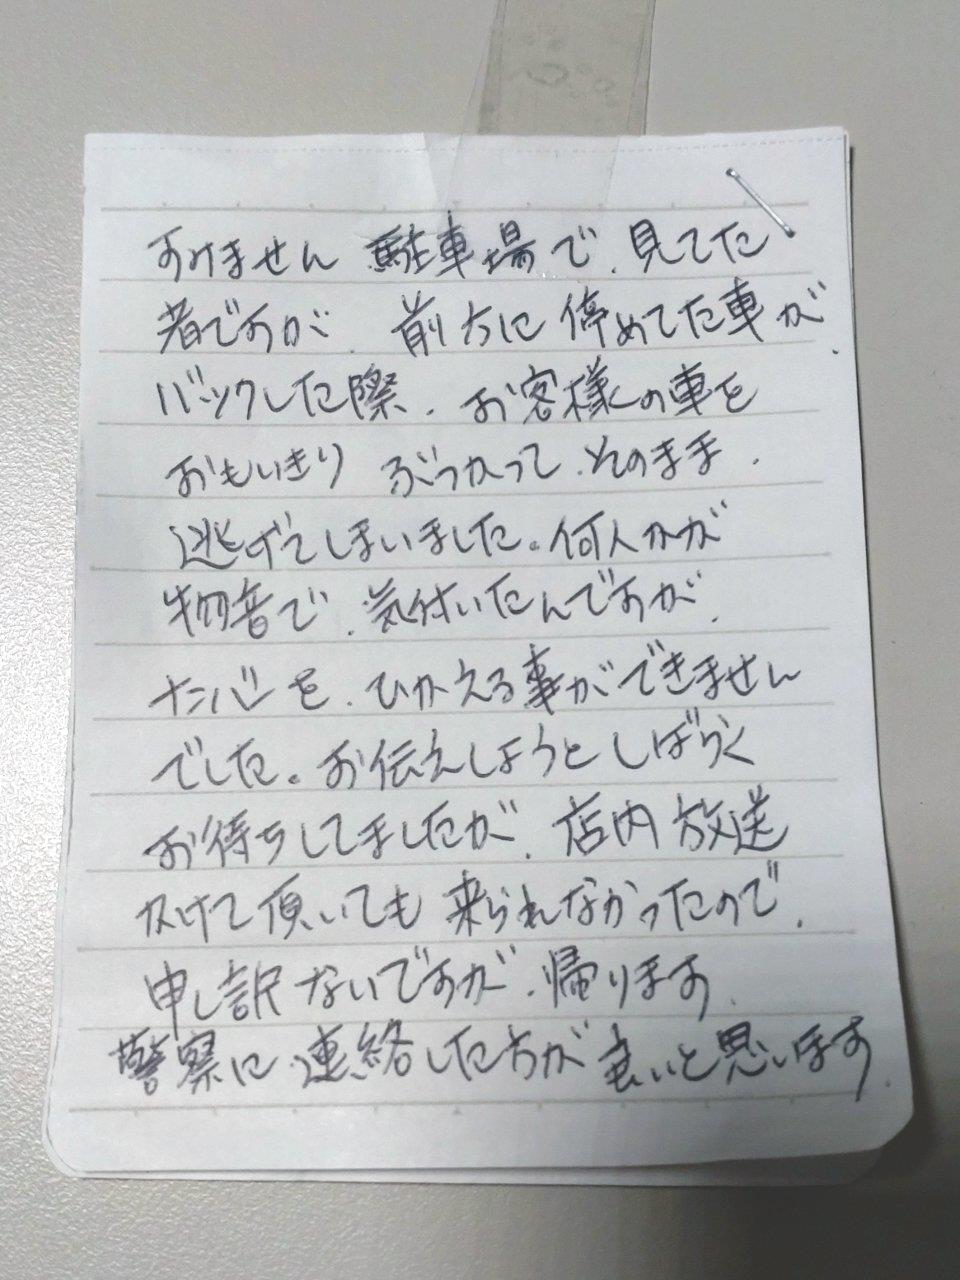 すみません 駐車場で、見てた
者ですが、前方に停めてた車が、
バックした際、お客様の車を
おもいきり ぶつかって、そのまま、
逃げてしまいました。何人かが
物音で、気付いたんですが、
ナンバーを、ひかえる事ができません
でした。お伝えしようとしばらく
お待ちしてましたが、店内放送
かけて頂いても来られなかったので、
申し訳ないですが、帰ります、
警察に連絡した方が良いと思います、